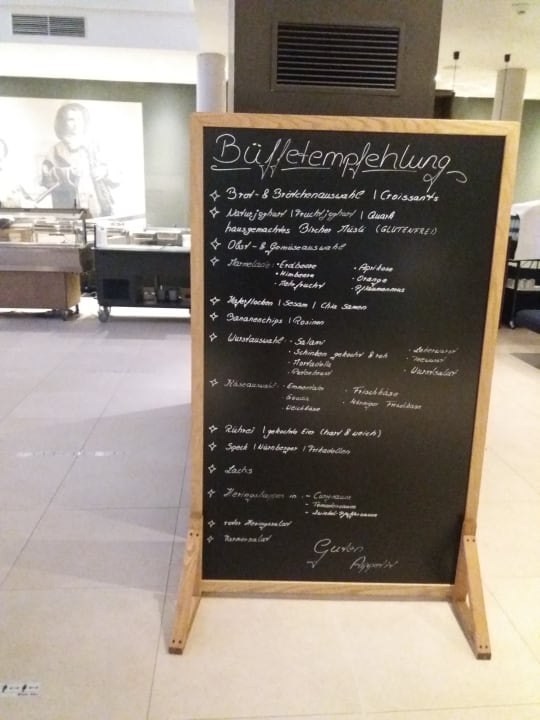 Büffetempfehlung
Brot- & Brötchenauswahl | Croissants
Naturjoghurt | Fruchtjoghurt | Quark
hausgemachtes Bircher Müsli (GLUTENFREI)
Obst- & Gemüseauswahl
Marmelade: • Erdbeere • Aprikose
• Himbeere • Orange
• Mehrfrucht • Pflaumenmus
Haferflocken | Sesam | Chia Samen
Bananenchips | Rosinen
Wurstauswahl • Salami • Leberwurst
• Schinken gekocht & roh • Teewurst
• Mortadella • Wurstsalat
• Putenbrust
Käseauswahl • Emmentaler • Frischkäse
Gouda • körniger Frischkäse
• Weichkäse
Rührei | gekochte Eier (hart & weich)
Speck | Nürnberger | Frikadellen
Lachs
Heringshappen in: - Currysauce
- Tomatensauce
roter Heringssalat
Farmersalat
Guten
Appetit